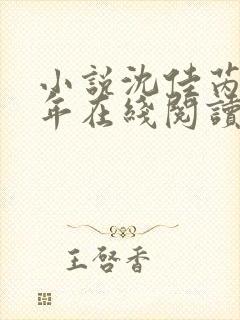 小說沈佳芮
年在綫閱讀
王啓香